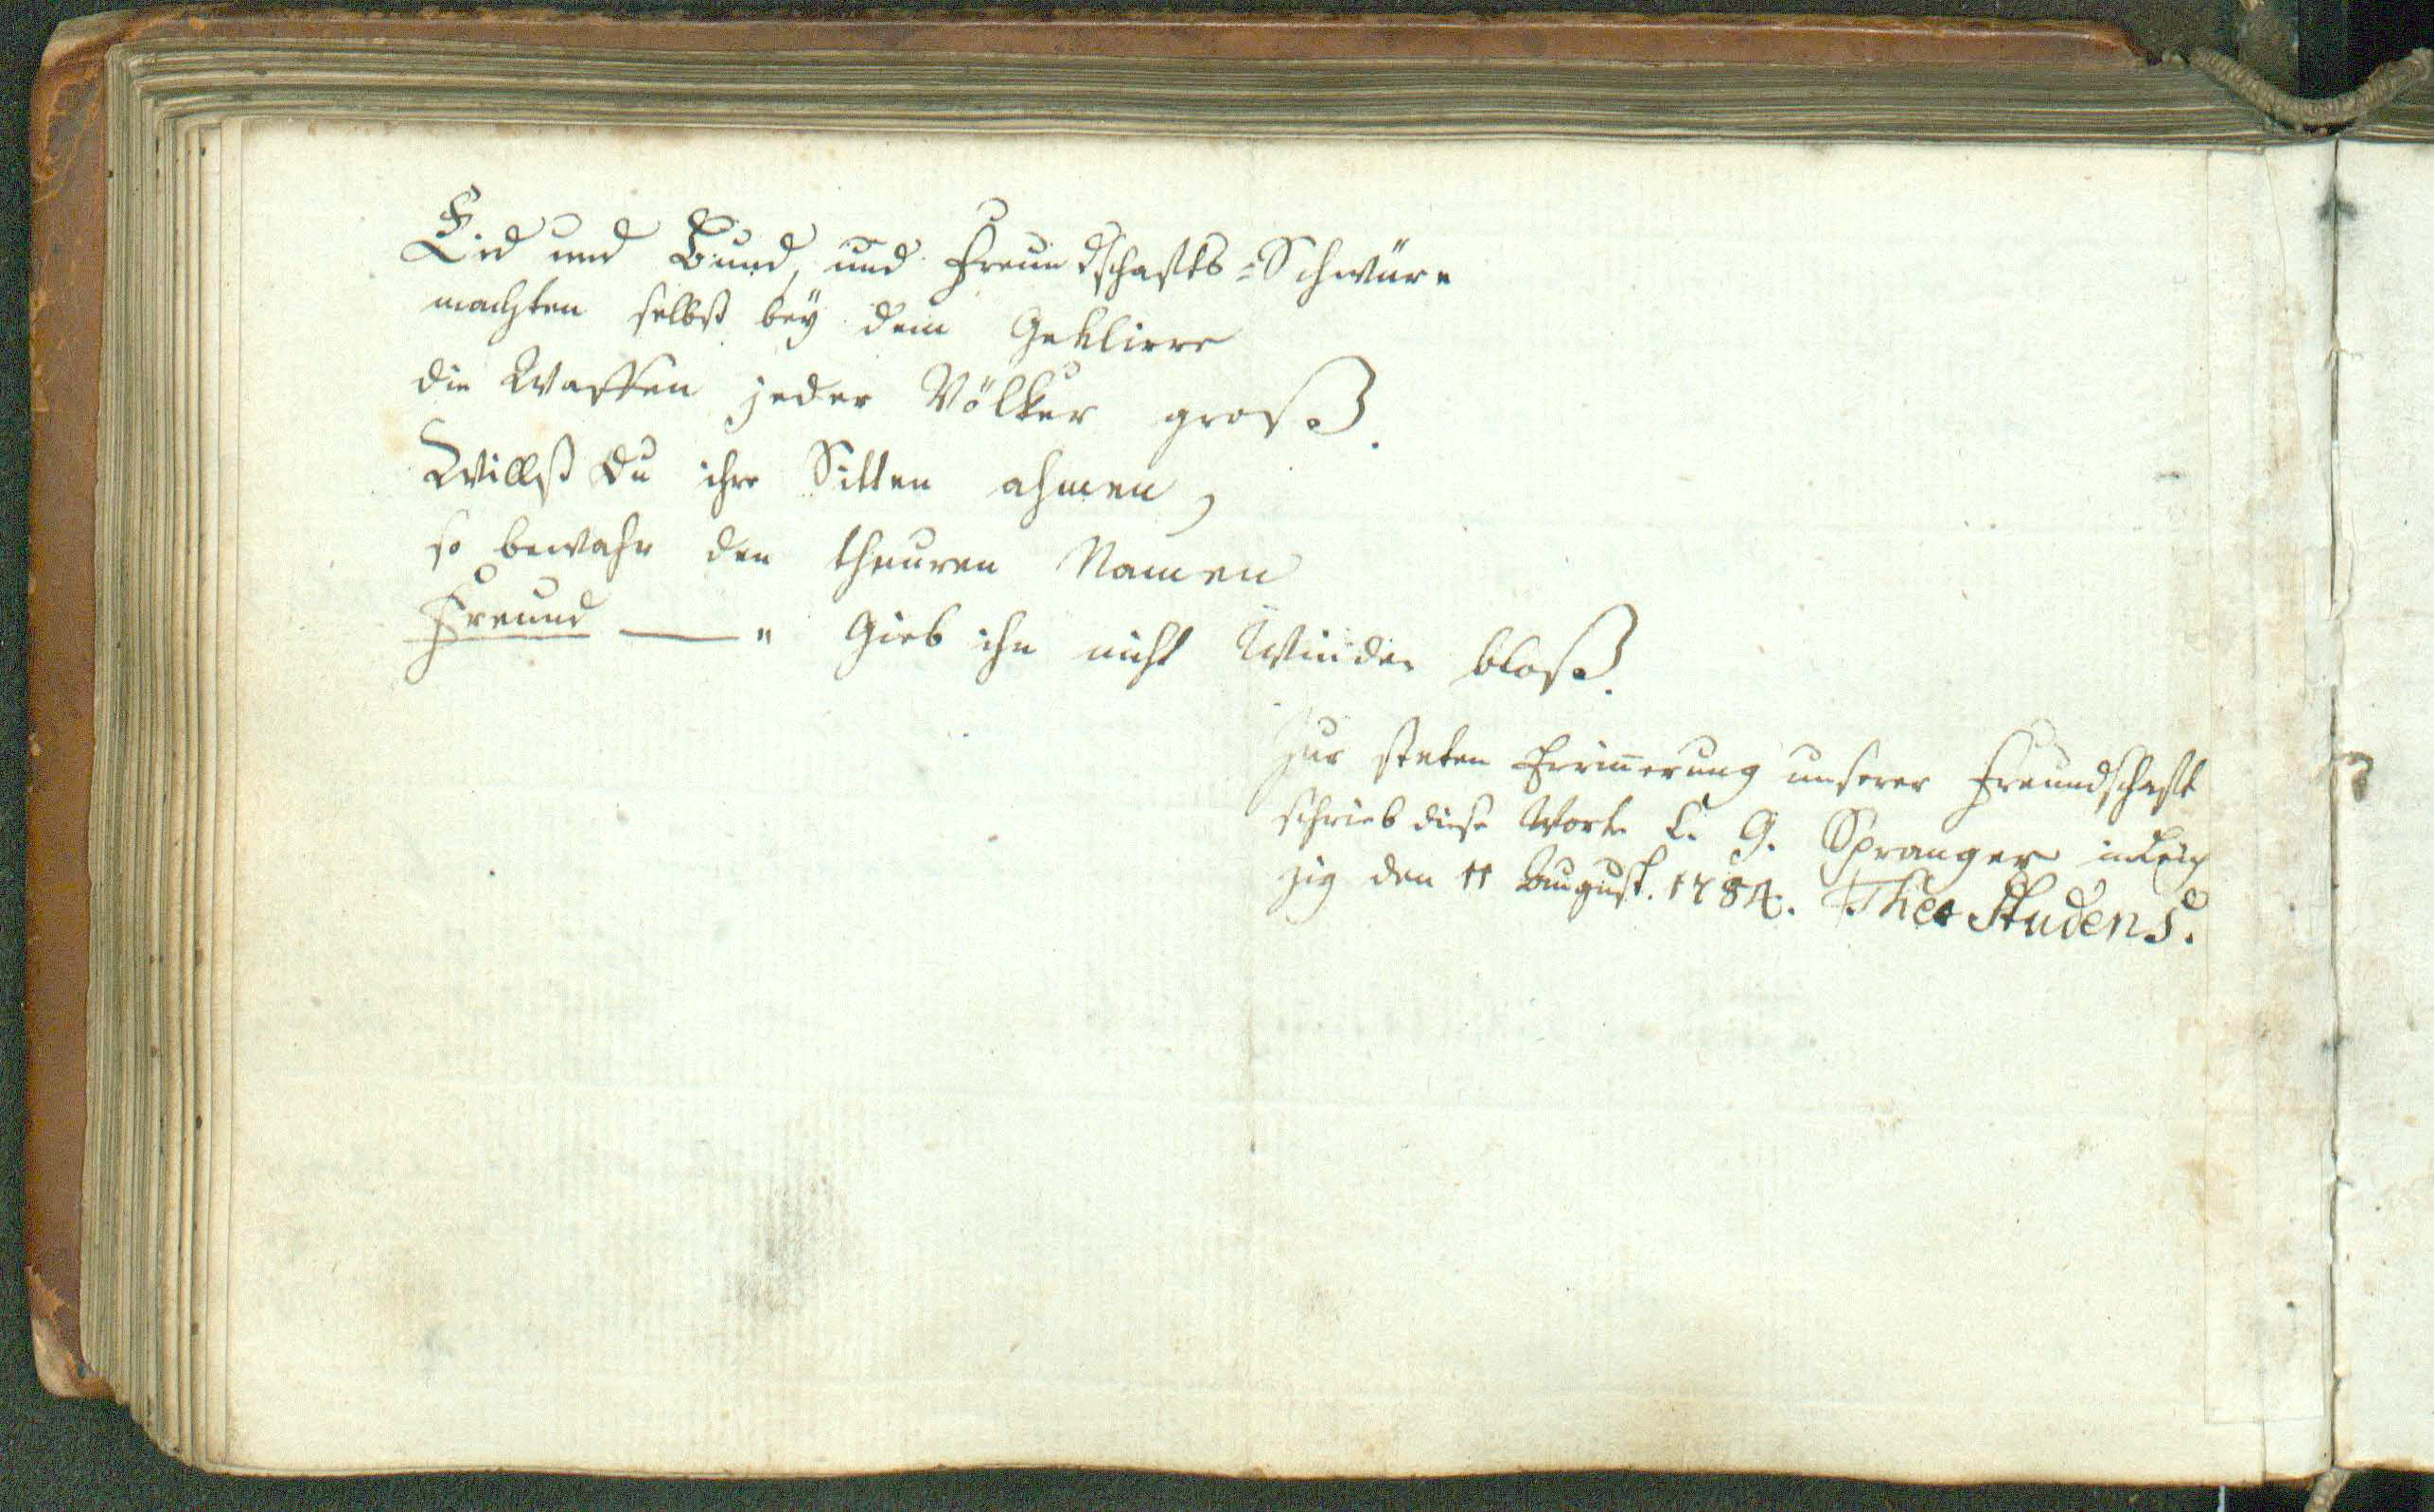 Eid und Bund, und Freundschafts-Schwüre
machten selbst bey dem Geklirre
die Waffen jeder Völker groß.
Willst Du ihre Sitten ahmen,
so bewahr den theuren Namen
Freund — " Gieb ihn nicht Winden bloß.
Zur steten Erin̄erung unserer Freundschaft
schrieb diese Worte C. G. Spranger in Leip
zig den 11 August. 1784. Theo Studens.